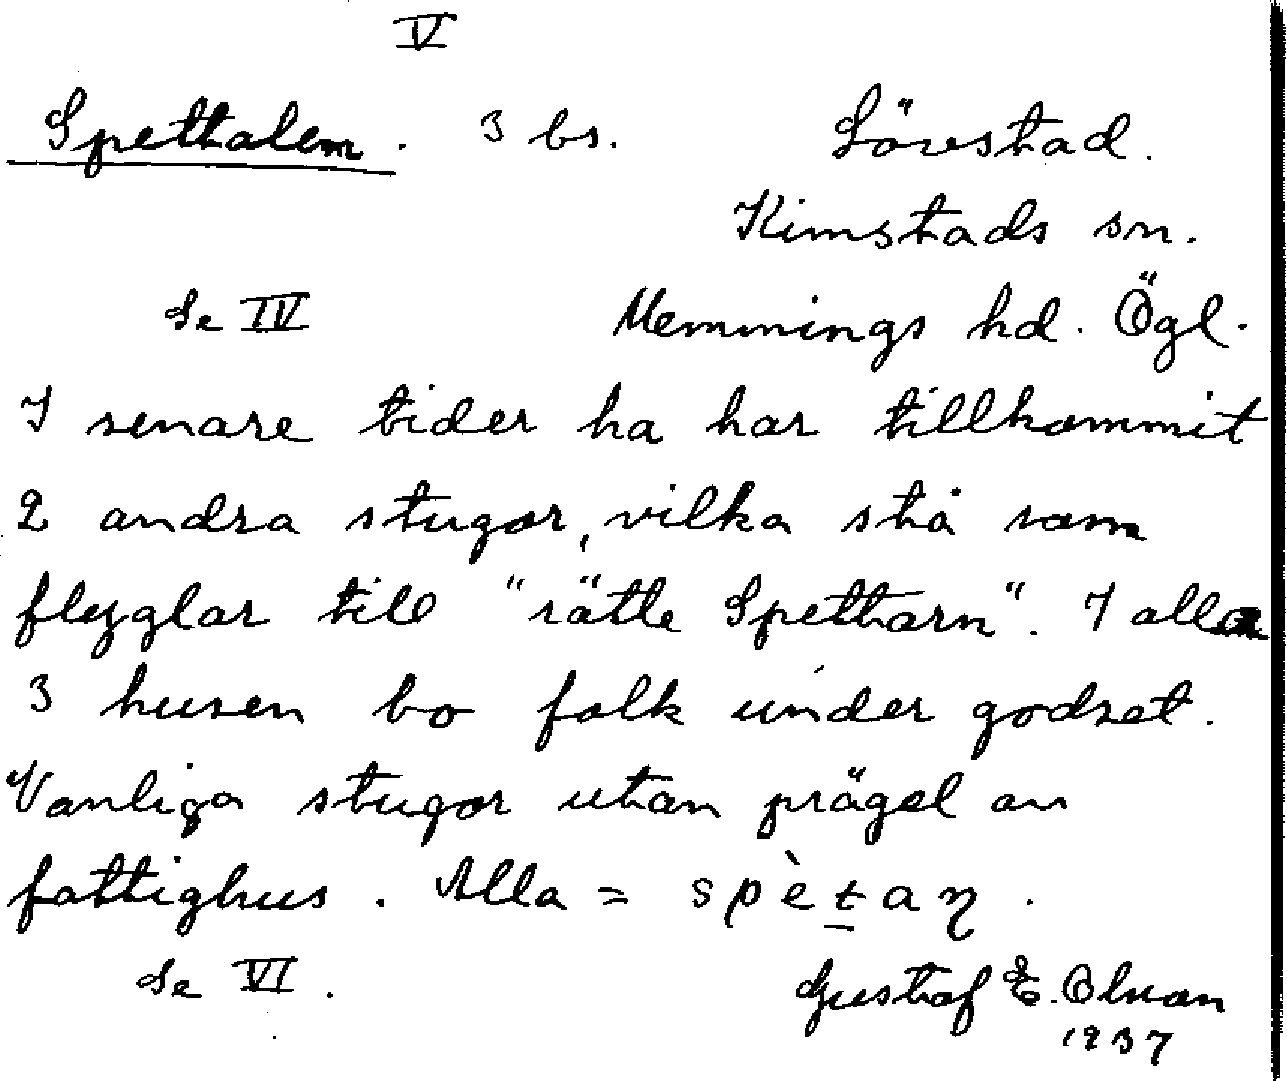 V
Spettalem. 3 bs. Lövstad.
Kimstads sn.
Se IV Memmings hd. Ögl.
I senare tider ha här tillkommit
2 andra stugor, vilka stå som
flyglar till "rätte Spettarn". I alla
3 husen bo folk under godset.
Vanliga stugor utan prägel av
fattighus. Alla = spètaɳ.
Se VI. Gustaf E. Olsson
1937